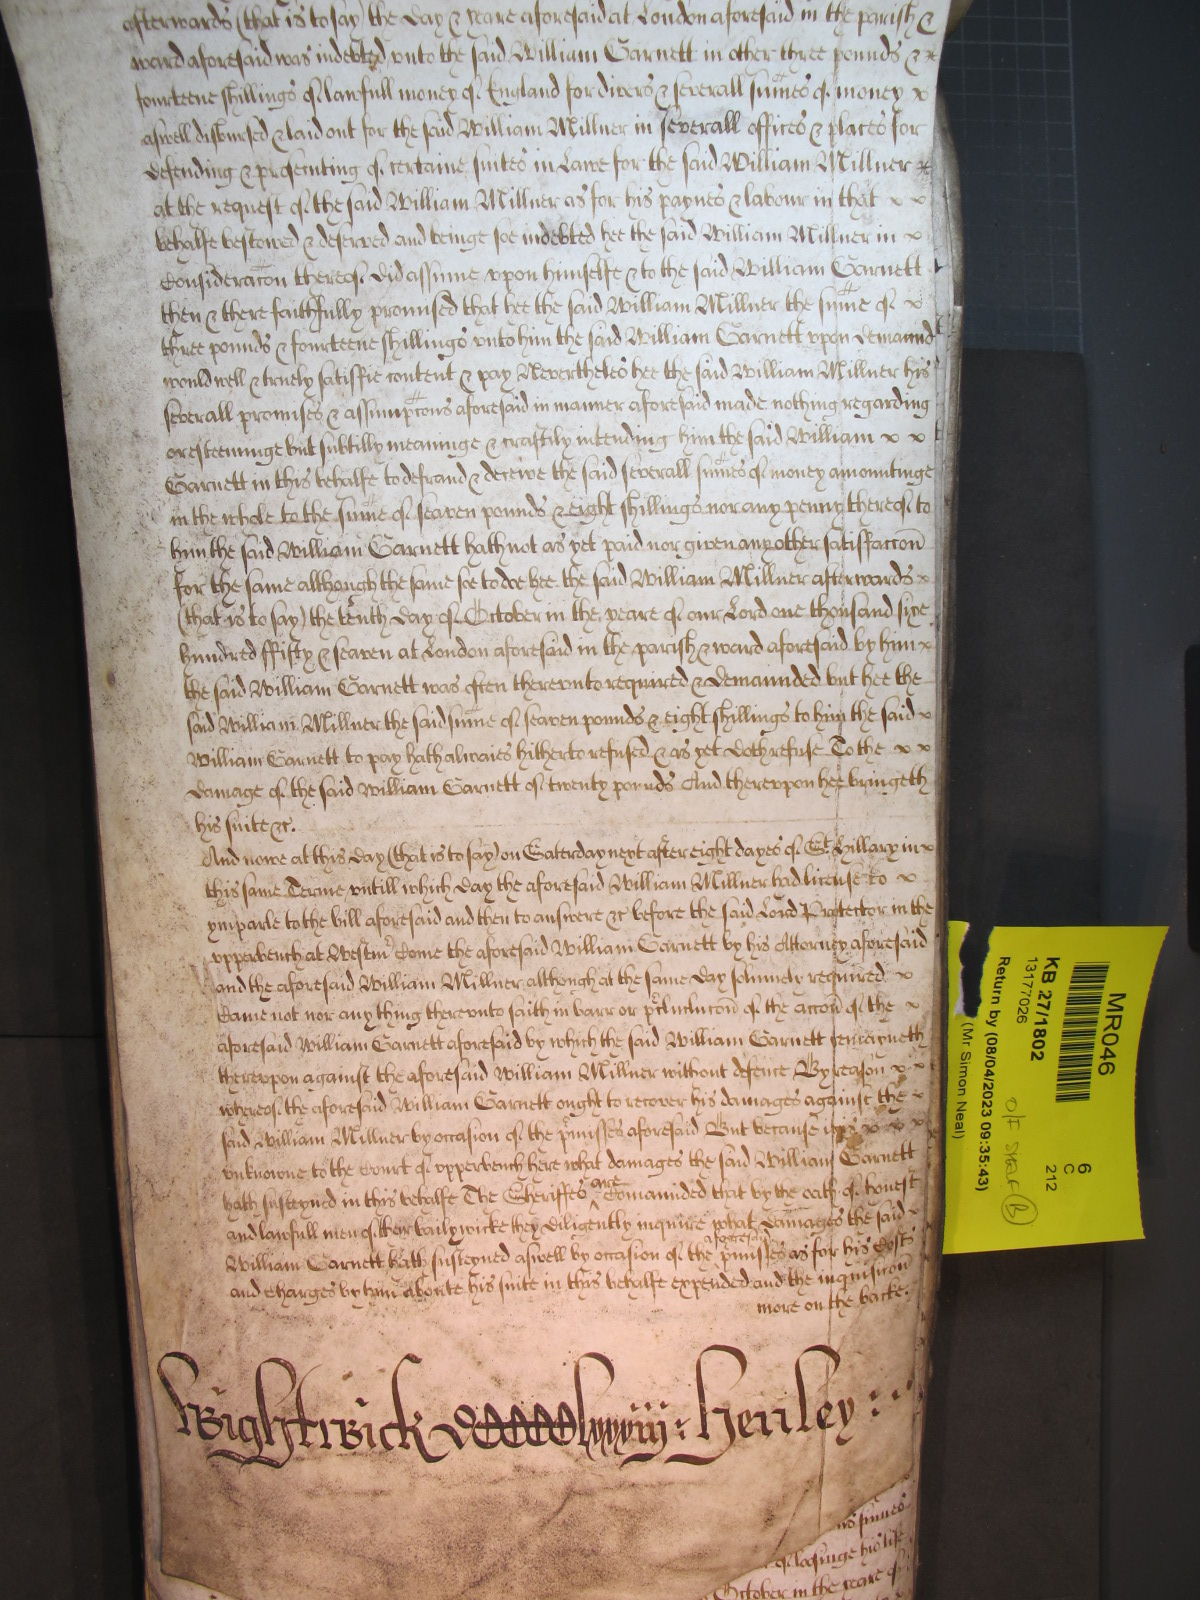 afterwards (that is to say) the day & yeare aforesaid at London aforesaid in the parish &
ward aforesaid was indebted vnto the said William Garnett in other three pounds &
fourteene shillings of lawfull money of England for divers & severall sumes of money x
aswell disbursed & laid out for the said William Millner in severall offices & places for
defending & prosecuting of certaine suites in Lawe for the said William Millner x
at the request of the said William Millner as for his paynes & labour in that x x
behalfe bestowed & deserved and beinge soe indebted hee the said William Millner in x
Consideracon thereof did assume vpon himselfe & to the said William Garnett
then & there faithfully promised that hee the said William Millner the sume of x
three pounds & fourteene shillings vnto him the said William Garnett vpon demaund
would well & truely satisfie content & pay Neverthelesse hee the said William Millner his
severall promises & assumpcons aforesaid in manner aforesaid made nothing regarding
or esteeminge but subtilly meaninge & craftily intending him the said William x x
Garnett in this behalfe to defraud & deceive the said severall sumes of money amountinge
in the whole to the sume of seaven pounds & eight shillings nor any penny thereof to
him the said William Garnett hath not as yet paid nor given any other satisfaccon
for the same although the same soe to doe hee the said William Millner afterwards x
(that is to say) the tenth day of October in the yeare of our Lord one thousand sixe
hundred ffifty & seaven at London aforesaid in the parish & ward aforesaid by him x
the said William Garnett was often therevnto required & demaunded but hee the
said William Millner the said sume of seaven pounds & eight shillings to him the said x
William Garnett to pay hath alwaies hitherto refused & as yet doth refuse To the x x
damage of the said William Garnett of twenty pounds And therevpon hee bringeth
his suite &c.
And nowe at this day (that is to say) on Saterday next after eight dayes of St Hillary in x
this same Terme vntill which day the aforesaid William Millner had license to x
ymparle to the bill aforesaid and then to answere &c before the said Lord Protector in the
vpperbench at Westmr Come the aforesaid William Garnett by his Attorney aforesaid
and the aforesaid William Millner although at the same day solmnely required x
Came not nor any thing therevnto saith in barr or preclucon of the accon of the x
aforesaid William Garnett aforesaid by which the said William Garnett remayneth
therevpon against the aforesaid William Millner without defence By reason x x
whereof the aforesaid William Garnett ought to recover his damages against the x
said William Millner by occasion of the pmisses aforesaid But because it is x x x
vnknowne to the Court of vpperbench here what damages the said William Garnett
hath susteyned in this behalfe The Sheriffes are Comaunded that by the oath of honest
and lawfull men of their bailywicke they diligently inquire what damages the said x
William Garnett hath susteyned aswell by occasion of the pmisses aforesaid as for his Costs
and Charges by him aboute his suite in this behalfe expended and the inquisicon
more on the backe.
Wightwick Henley
sumes
of loosinge his life
October in the yeare of
MR046
6
C
212
KB 27/1802
13177026
Return by (08/04/2023 09:35:43)
(Mr Simon Neal)
O/F
B